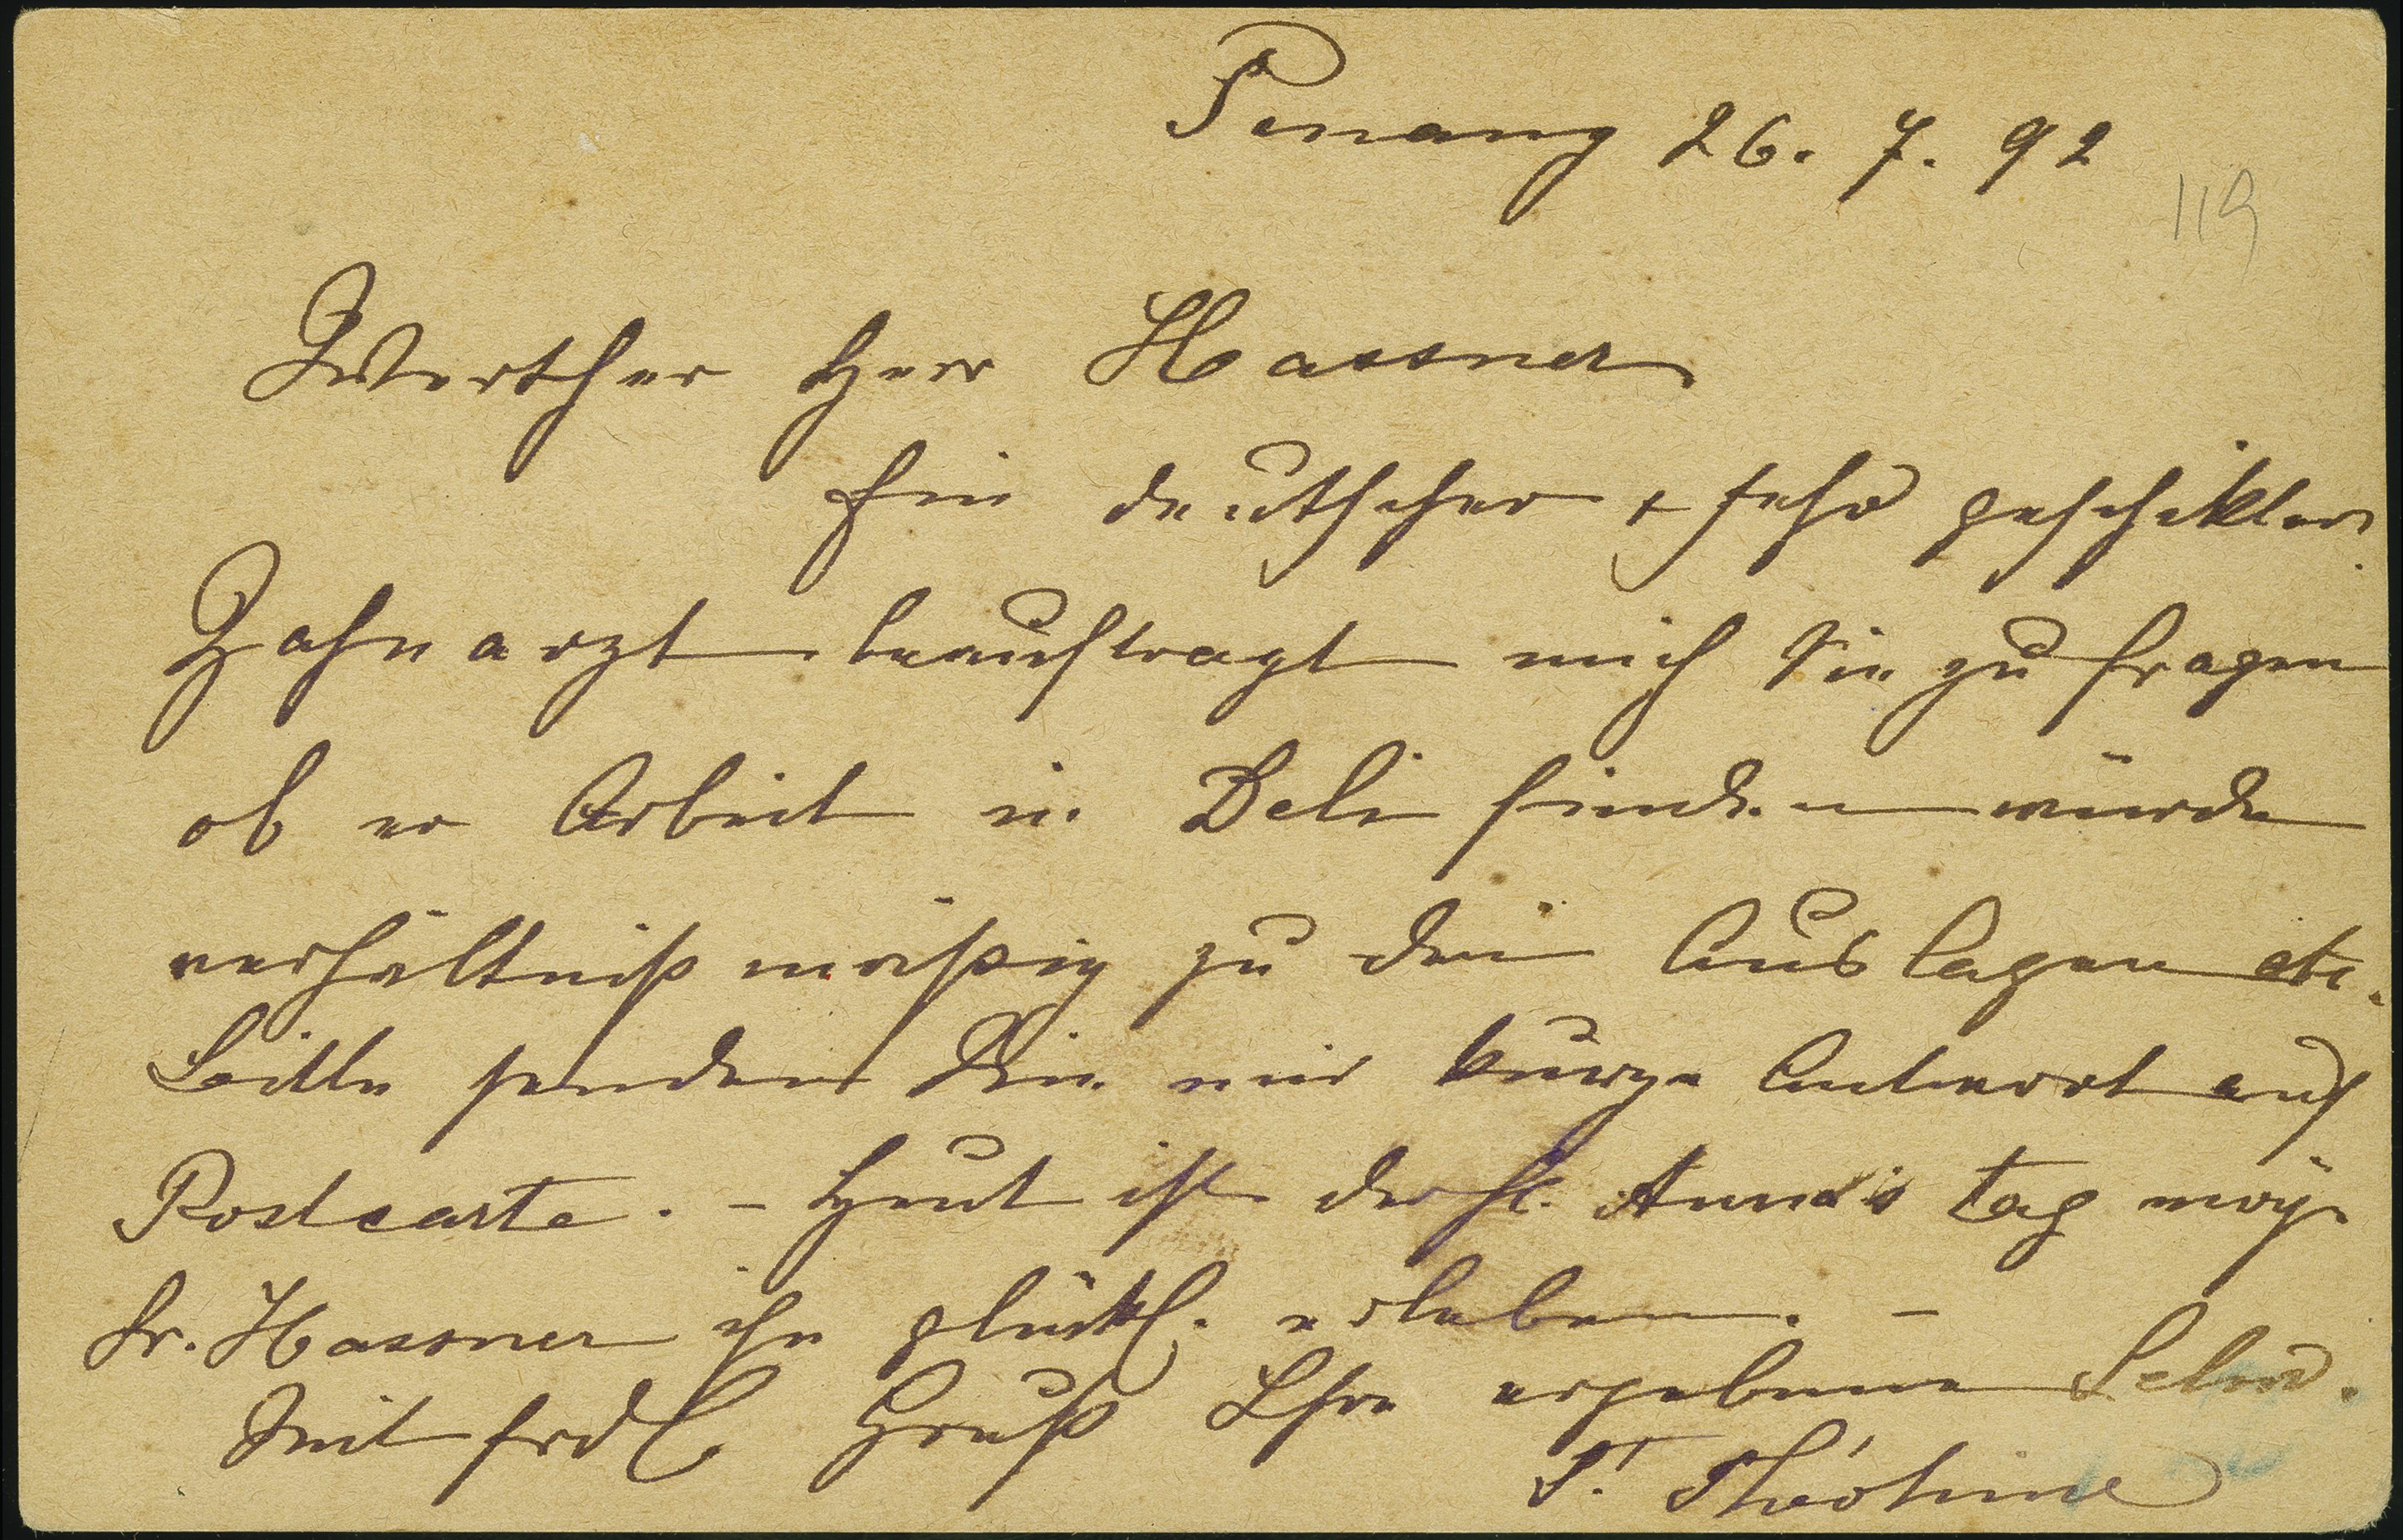 Penang 26. 7. 92
119
Werther Herr Hassner
Ein deutscher + sehr geschikter
Zahnarzt beauftragt mich Sie zu fragen
ob er Arbeit in Deli finden würde
verhältnißmäßig zu den Auslagen etc.
Bitte senden Sie mir kurze Antwort auf
Postcarte. - Heut ist der hl. Anna's tag möge
Fr. Hassner ihn glückl. erleben. -
Mit frdl Gruß Ihre ergebene Schw.